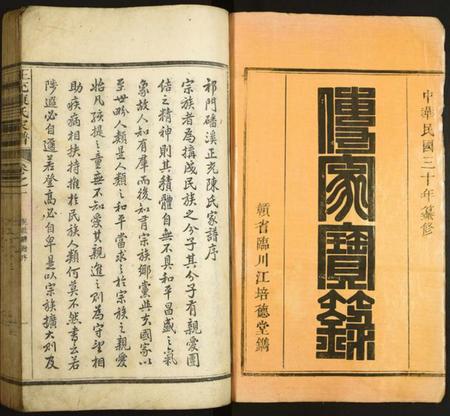 中華民國三十年纂修
傳家寶錄
贛省臨川江培德堂鐫
祁門磻溪正充陳氏家譜序
宗族者為搆成民族之分子其分子有親愛團
結之精神則其積體自無不具和平昌盛之氣
象故人知有羣而後知言宗族鄉黨與夫國家以
至世畍人類是人類之和平當求之於宗族之親愛
始凡孩提之童無不知愛其親進之則為守望相
助疾病相扶持推於民族人類何莫不然書云若
陟遐必自邇若登高必自卑是以宗族擴大則友
陳氏家譜
卷之一